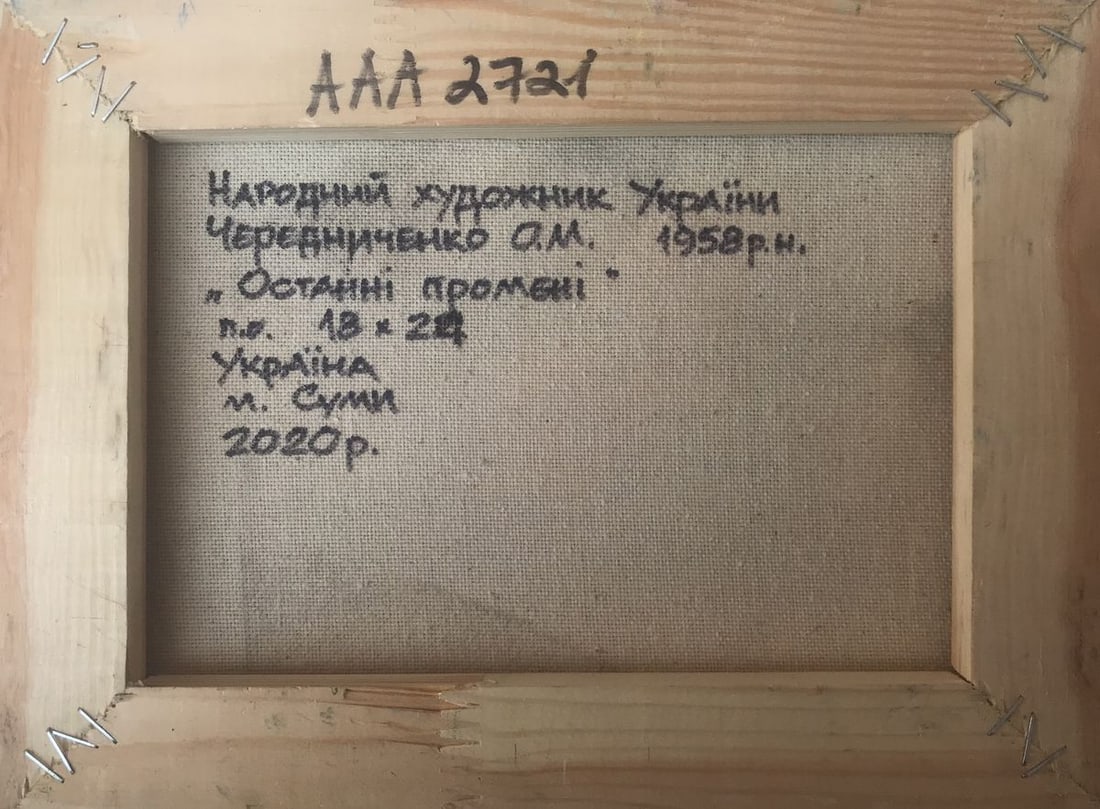 ААА 2721
Народний художник України
Чередниченко О.М. 1958р.н.
„Останні промені"
п.о. 18 х 24
Україна
м. Суми
2020р.